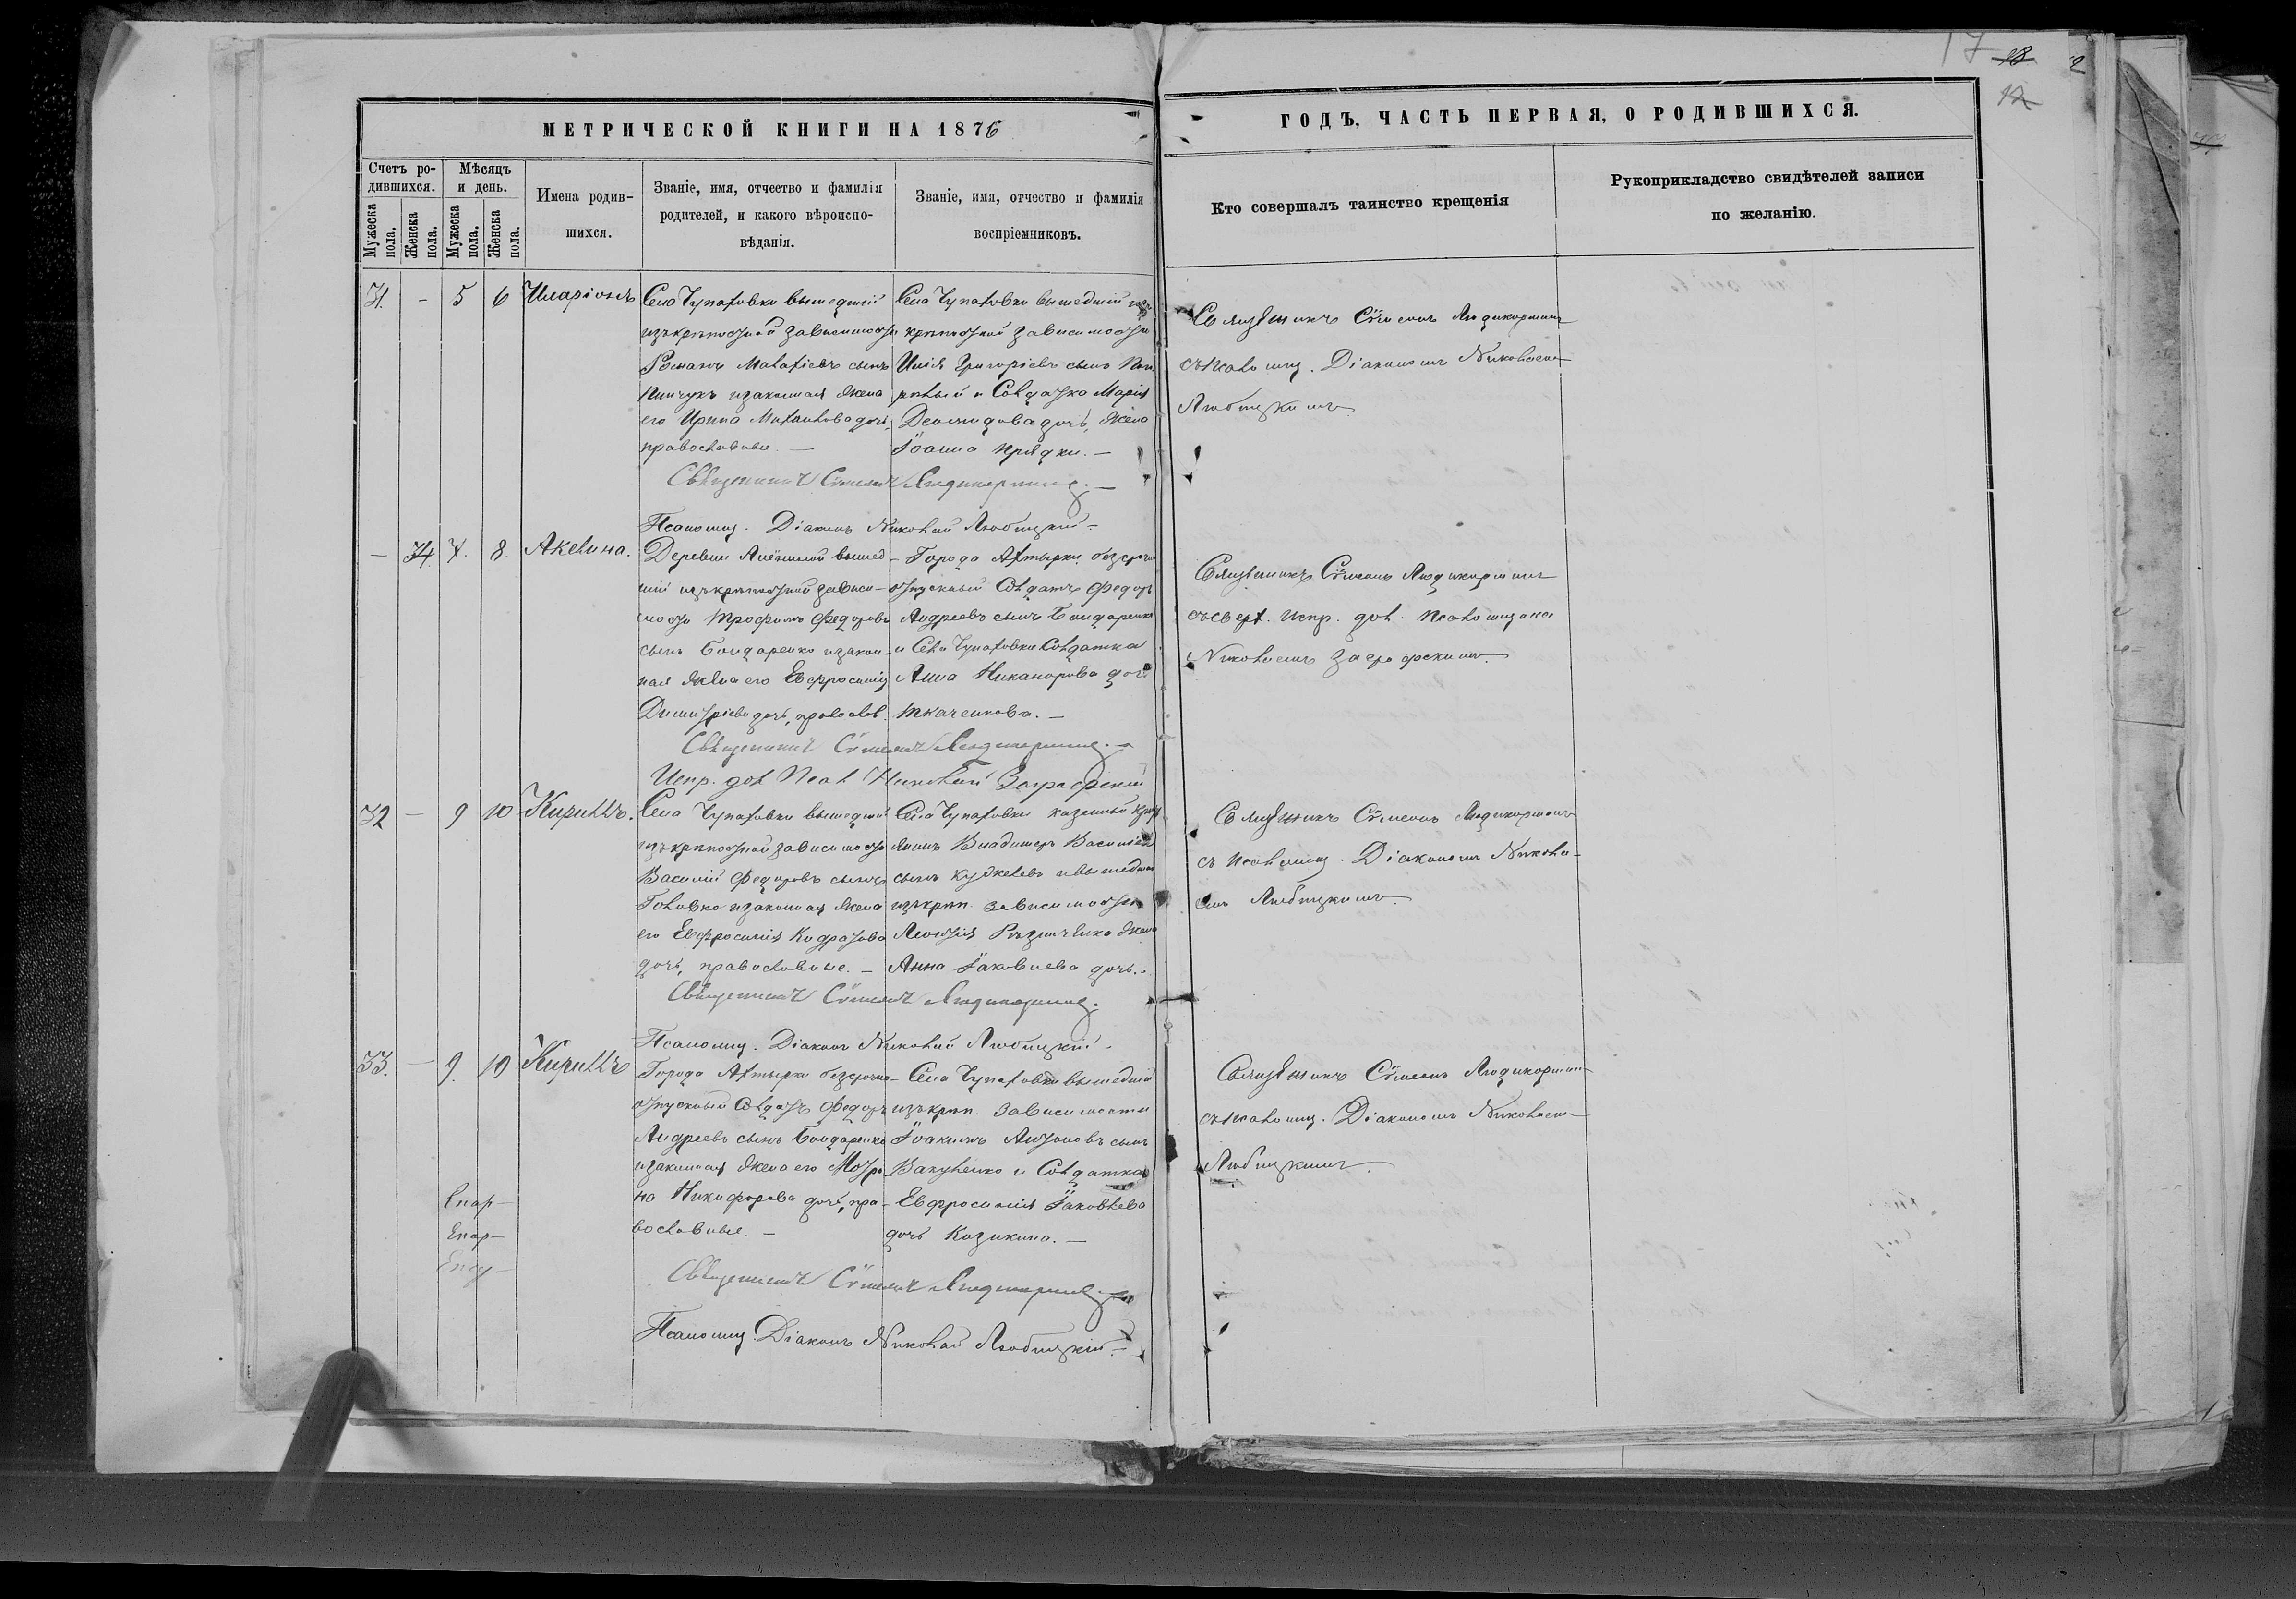 17 18
12
МЕТРИЧЕСКОЙ КНИГИ НА 1876
ГОДЪ, ЧАСТЬ ПЕРВАЯ, О РОДИВШИХСЯ.
Счетъ ро-
дившихся.
Мѣсяцъ
и день.
Мужеска
пола.
Женска
пола.
Мужеска
пола.
Женска
пола.
Имена родив-
шихся.
Званіе, имя, отчество и фамилія
родителей, и какого вѣроиспо-
вѣданія.
Званіе, имя, отчество и фамилія
воспріемниковъ.
Кто совершалъ таинство крещенія
Рукоприкладство свидѣтелей записи
по желанію.
31. - 5 6 Иларіонъ
Села Чупаховки вышедшій
изъ крѣпостной зависимости
Романъ Матѳіевъ сынъ
Пинчукъ и законная жена
его Ирина Михаилова дочь,
православные. —
Села Чупаховки вышедшій изъ
крѣпостной зависимости
Илія Григоріевъ сынъ
и Солдатка Марія
Діомидова дочь, жена
Іоанна Прядки. —
Священникъ Сѵмеонъ
съ псаломщ. Діакономъ Николаемъ
Любицкимъ
Священникъ Сѵмеонъ
Псаломщ. Діаконъ Николай Любицкій —
— 34. 7. 8. Акелина.
Деревни вышед-
шій изъ крѣпостной зависи-
мости Трофимъ Федоровъ
сынъ Бондаренко и закон-
ная жена его Евфросинія
Димитріева дочь, православ.
Города Ахтырки безсрочно
отпускный Солдатъ Федоръ
Андреевъ сынъ Бондаренко
и Села Чупаховки Солдатка
Анна Никанорова дочь
Ткаченкова. —
Священникъ Сѵмеонъ
съ сверх. испр. дол. псаломщика
Николаемъ
Священникъ Сѵмеонъ
Испр. дол. Псал. Николай
32 — 9 10 Кириллъ.
Села Чупаховки вышедшій
изъ крѣпостной зависимости
Василій Федоровъ сынъ
Головко и законная жена
его Евфросинія Кодратова
дочь, православные. —
Села Чупаховки казенный крест
янинъ Владимеръ Василіевъ
сынъ и вышедш
изъ крѣп. зависимости
Леонтія жена
Анна Іаковлева дочь.
Священникъ Сѵмеонъ
съ псаломщ. Діакономъ Никола-
емъ Любицкимъ
Священникъ Сѵмеонъ
Псаломщ. Діаконъ Николай Любицкій.
33. — 9. 10 Кириллъ
Города Ахтырки безсрочно
отпускный Солдатъ Федоръ
Андреевъ сынъ Бондаренко
и законная жена его Матро-
на Никифорова дочь, пра-
вославные. —
Села Чупаховки вышедшій
изъ крѣп. зависимости
Іоакимъ Антоновъ сынъ
Вакуленко и Солдатка
Евфросинія Іаковлева
дочь Козикина. —
Священникъ Сѵмеонъ
съ псаломщ. Діакономъ Николаем
Любицкимъ.
Священникъ Сѵмеонъ
Псаломщ. Діаконъ Николай Любицкій. —